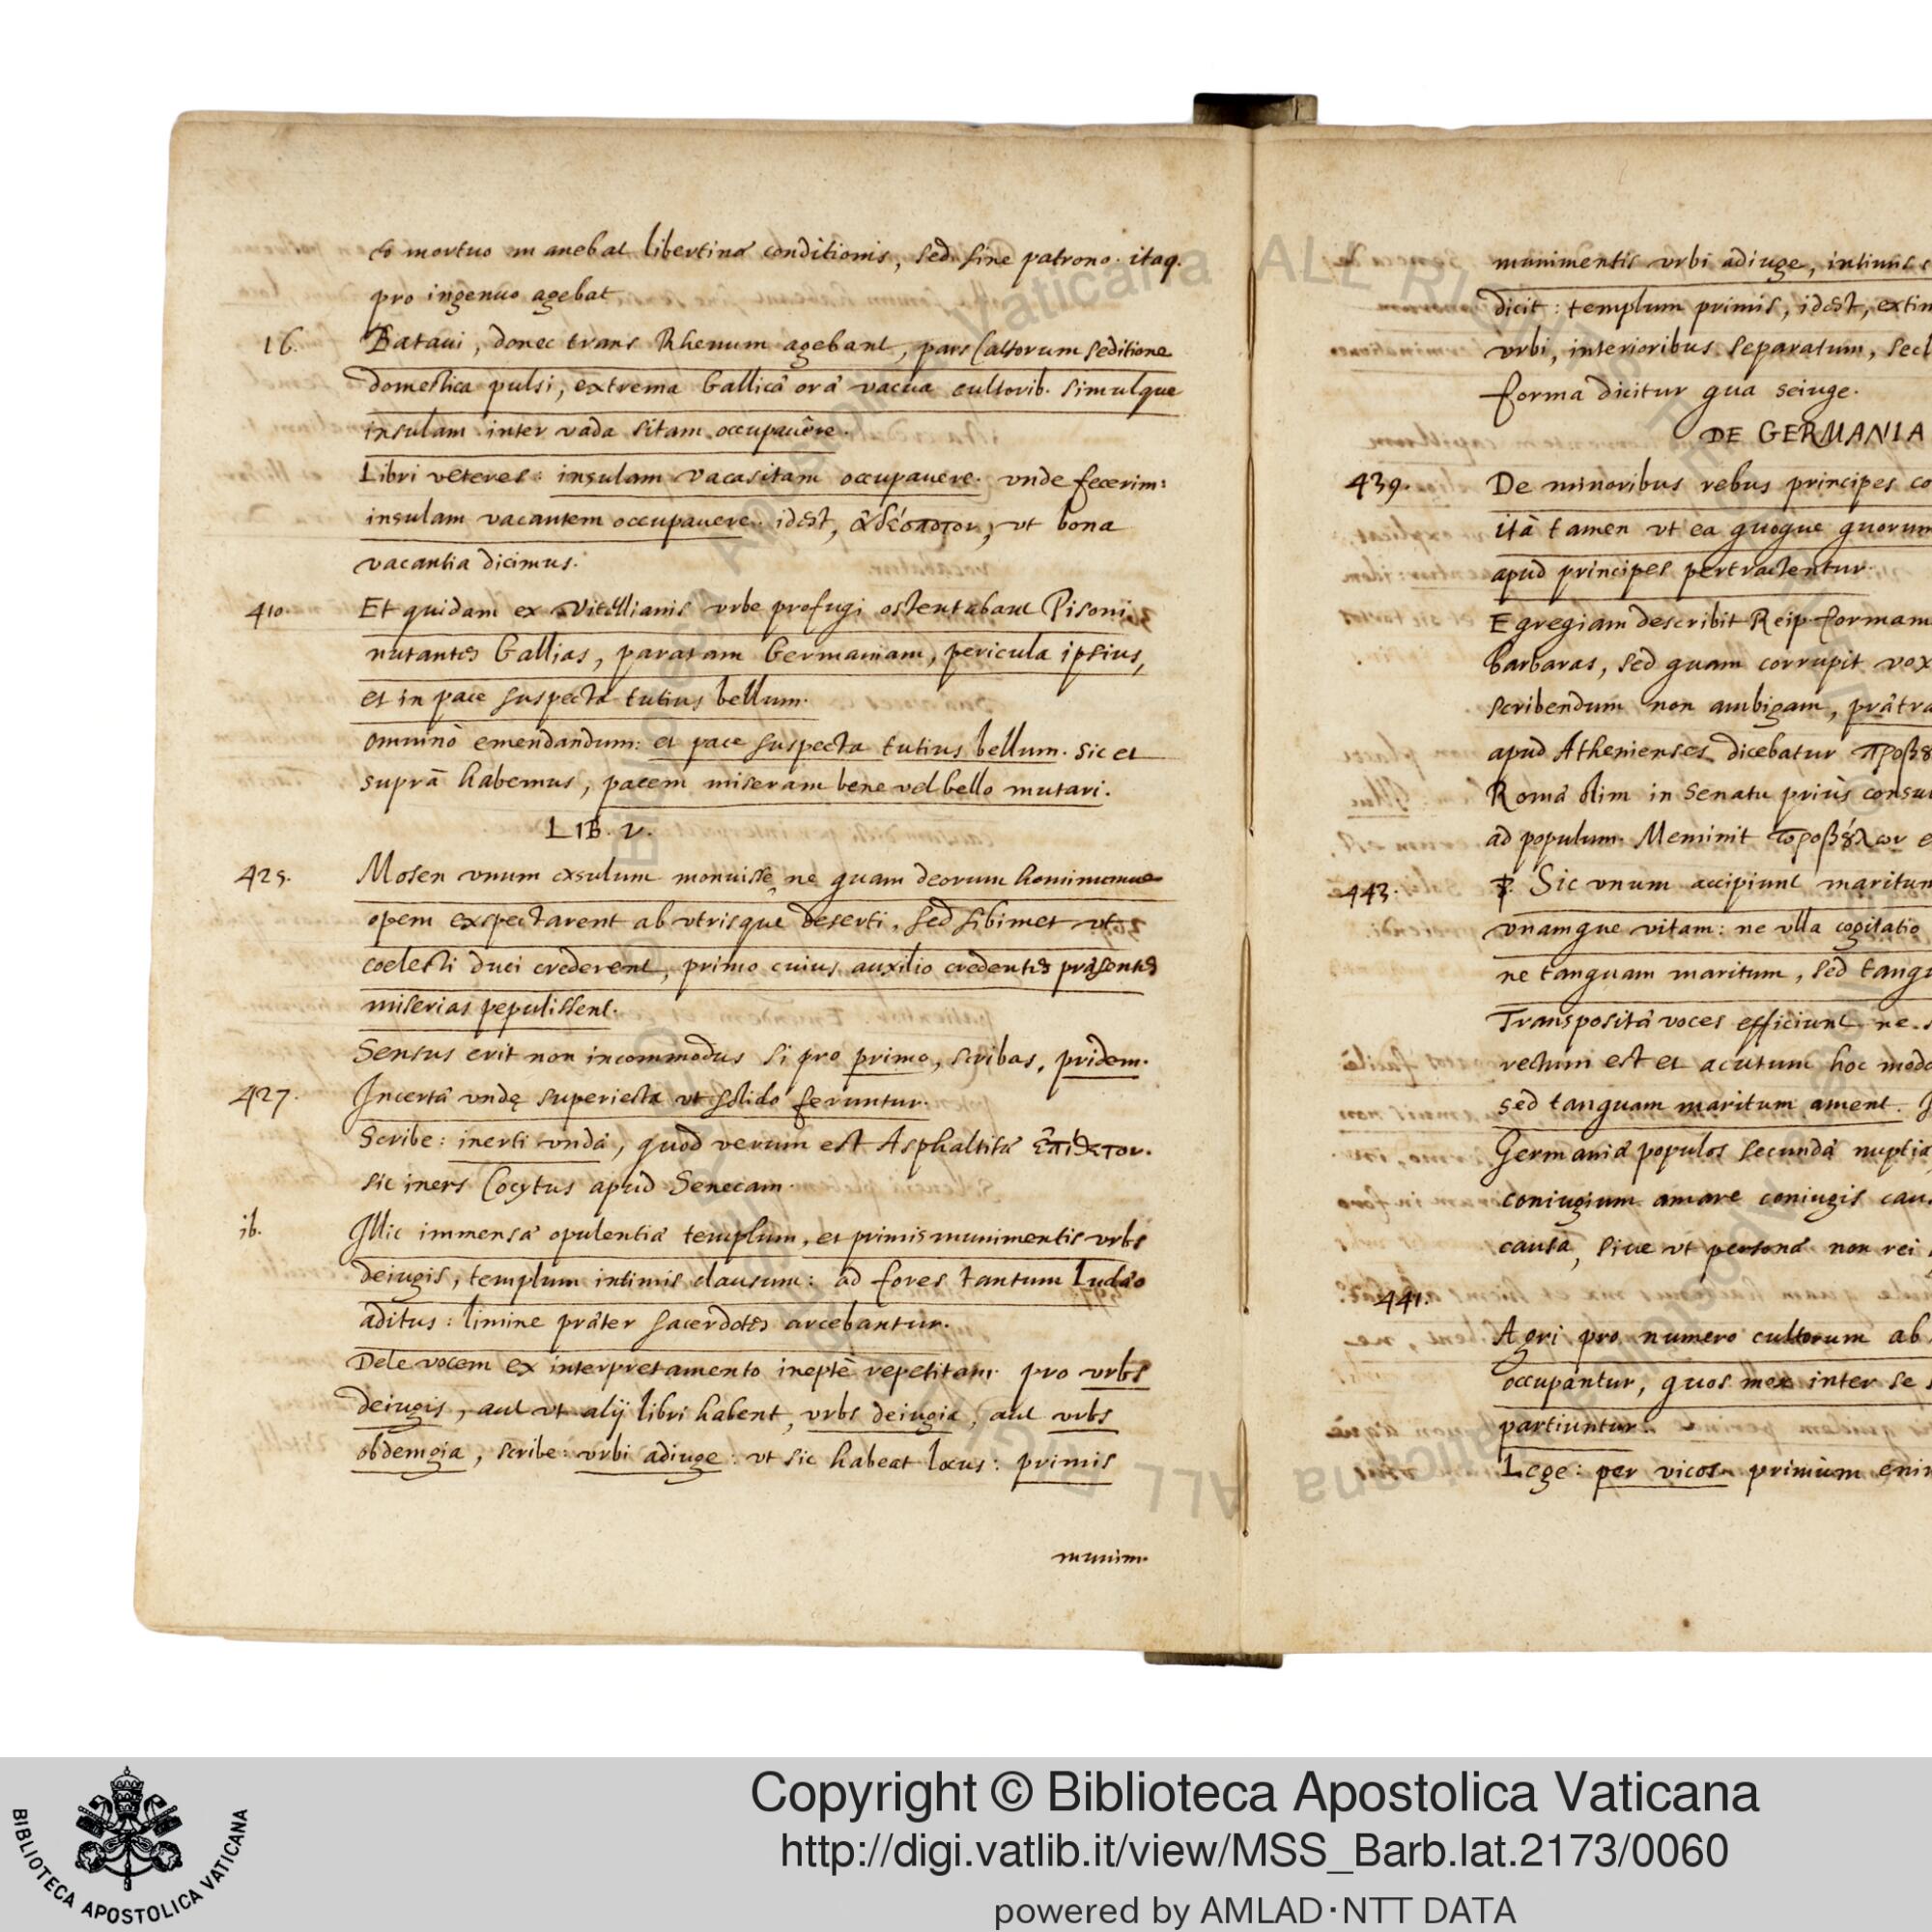 eo mortuo manebat libertinæ conditionis, sed sine patrono. itaq.
pro ingenuo agebat
16. Bataui, donec trans Rhenum agebant, pars Cattorum seditione
domestica pulsi, extrema Gallicæ oræ vacua cultorib. simulque
insulam inter vada sitam occupauêre.
Libri veteres: insulam vacasitam occupauere. vnde fecerim:
insulam vacantem occupauere. idest, ἀδέσποτον, vt bona
vacantia dicimus.
410. Et quidam ex Vitellianis vrbe profugi ostentabant Pisoni
nutantes Gallias, paratam Germaniam, pericula ipsius,
et in pace suspecta tutius bellum.
omninò emendandum: et pace suspecta tutius bellum. sic et
suprà habemus, pacem miseram bene vel bello mutari.
LIB. V.
425. Mosen vnum exsulum monuisse, ne quam deorum hominumue
opem exspectarent ab vtrisque deserti, sed sibimet vt
coelesti duci crederent, primo cuius auxilio credentes præsentes
miserias pepulissent.
Sensus erit non incommodus si pro primo, scribas, pridem.
427. Incertæ vndę superiecta vt solido feruntur.
Scribe: inerti vndæ, quod verum est Asphaltitæ
sic iners Cocytus apud Senecam.
ib. Illic immensæ opulentiæ templum, et primis munimentis vrbs
deiugis, templum intimis clausum: ad fores tantum Iudæo
aditus: limine præter sacerdotes arcebantur.
Dele vocem ex interpretamento ineptè repetitam. pro vrbs
deiugis, aut vt alij libri habent, vrbs deiugia, aut vrbs
obdemgia, scribe: vrbi adiuge: vt sic habeat locus: primis
munim.
munimentis vrbi adiuge, intimis
dicit: templum primis, idest, extim
vrbi, interioribus separatum, secl
forma dicitur qua seiuge.
DE GERMANIA
439. De minoribus rebus principes co
ità tamen vt ea quoque quorum
apud principes pertractentur.
Egregiam describit Reip. formam
barbaras, sed quam corrupit vox
scribendum non ambigam, prætra
apud Athenienses dicebatur
Romæ olim in Senatu priùs consu
ad populum. Meminit
443. Sic vnum accipiunt maritum
vnamque vitam: ne vlla cogitatio
ne tanquam maritum, sed tanqu
Transpositæ voces efficiunt ne s
rectum est et acutum hoc modo
sed tanquam maritum ament.
Germaniæ populos secundæ nuptiæ
coniugium amare coniugis caus
causa, siue vt personæ non rei
441. Agri pro numero cultorum ab
occupantur, quos mox inter se s
partiuntur.
Lege: per vicos. primùm enim
Copyright © Biblioteca Apostolica Vaticana
http://digi.vatlib.it/view/MSS_Barb.lat.2173/0060
powered by AMLAD·NTT DATA
BIBLIOTECA APOSTOLICA VATICANA